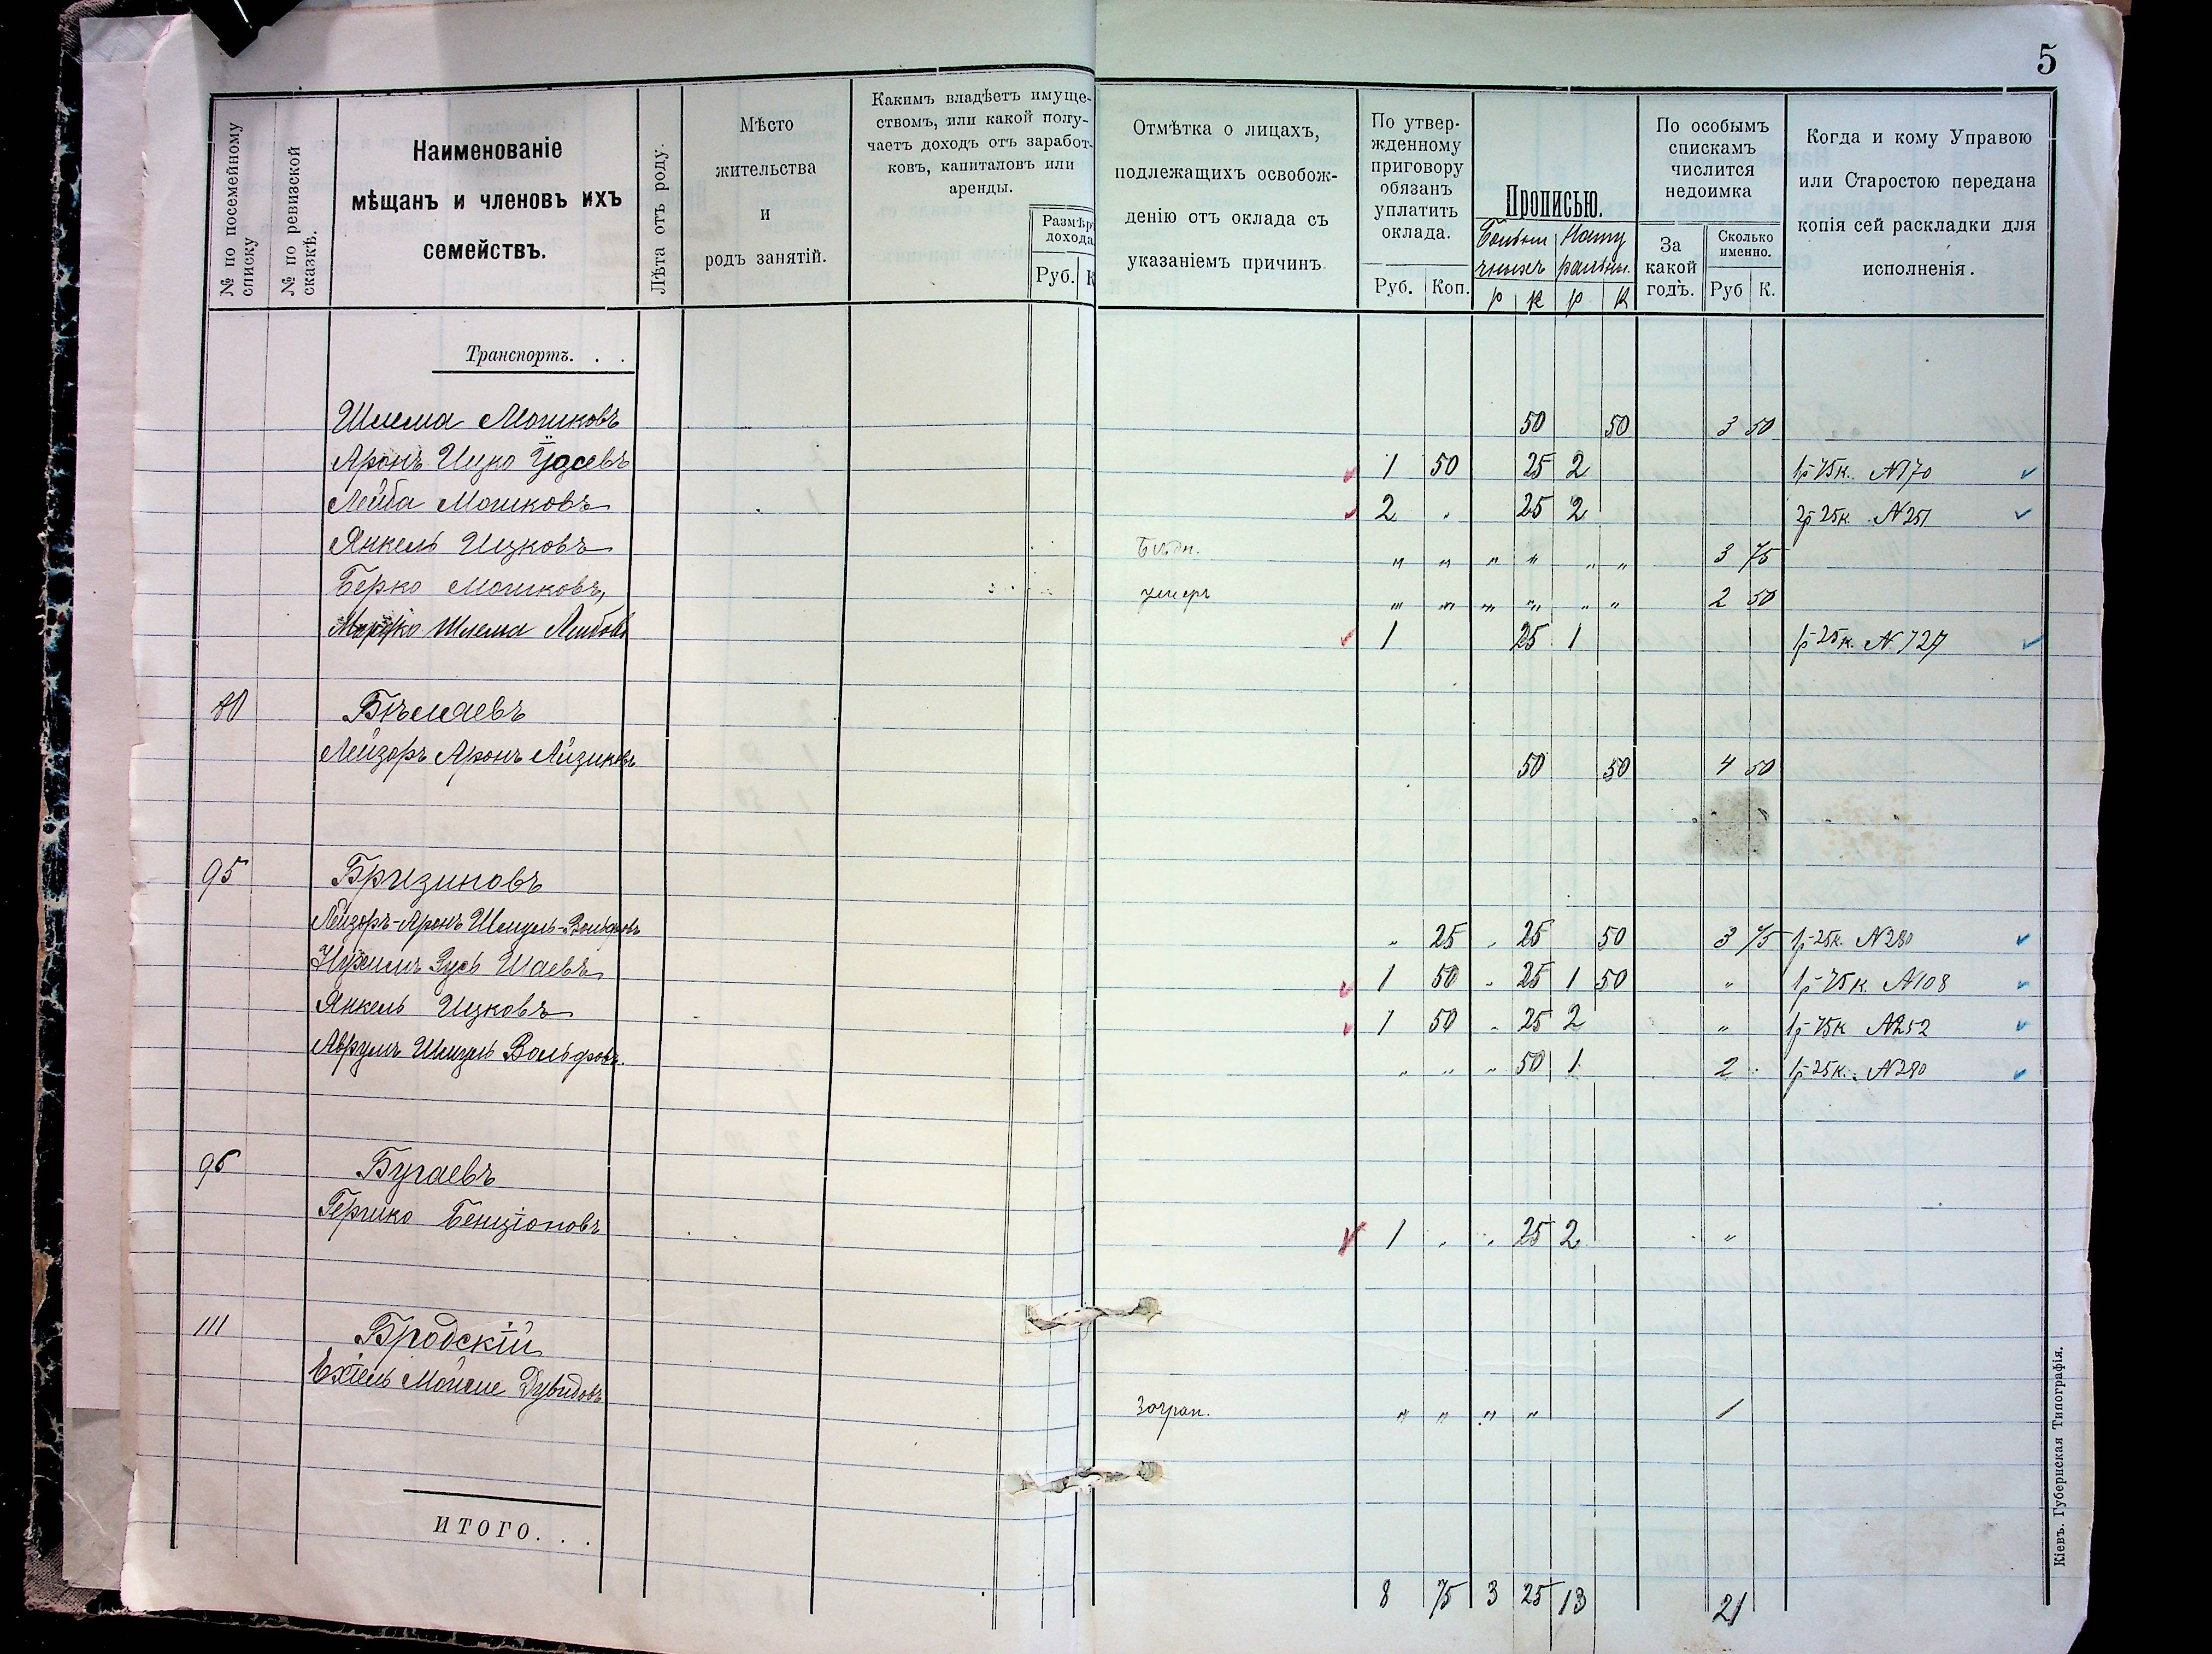 5
№ по посемейному списку
№ по ревизской сказкѣ.
Наименованіе
мѣщанъ и членовъ ихъ
семействъ.
Лѣта отъ роду.
Мѣсто
жительства
и
родъ занятій.
Какимъ владѣетъ имуще-
ствомъ, или какой полу-
чаетъ доходъ отъ заработ-
ковъ, капиталовъ или
аренды.
Размѣръ
дохода
Руб. К
Отмѣтка о лицахъ,
подлежащихъ освобож-
денію отъ оклада съ
указаніемъ причинъ
По утвер-
жденному
приговору
обязанъ
уплатить
оклада.
Руб. Коп.
Прописью.
р к р к
По особымъ
спискамъ
числится
недоимка
За
какой
годъ.
Сколько
именно.
Руб К.
Когда и кому Управою
или Старостою передана
копія сей раскладки для
исполненія.
Транспортъ. . .
Шлема Мошковъ 50 50 3 50
Аронъ Ицко 1 50 25 2 1р 75к. №170
Лейба Мошковъ 2 " 25 2 2р 25к. №251
Янкель Ицковъ Бѣдн. " " " " " " 3 75
Берко Мошковъ, умеръ " " " " " " 2 50
Шлема Лейбовъ 1 25 1 1р 25к. №727
80 Бѣлаевъ
Лейзоръ Аронъ Айзиковъ 50 50 4 50
95 Бризиновъ
Лейзоръ-Аронъ Шмуль-Вольфовъ " 25 " 25 50 3 75 1р 25к. №280
Нухимъ Зусь Шаевъ 1 50 " 25 1 50 " 1р 75к. №108
Янкель Ицковъ 1 50 " 25 2 " 1р 75к №252
Аврумъ Шмуль Вольфовъ. " " " 50 1 2 1р 25к. №280
96 Бугаевъ
Гершко Бенціоновъ 1 " " 25 2 "
111 Бродскій
Ехіель Мойше Дувидовъ Загран. " " " " 1
ИТОГО. . .
8 75 3 25 13 21
Кіевъ. Губернская Типографія.